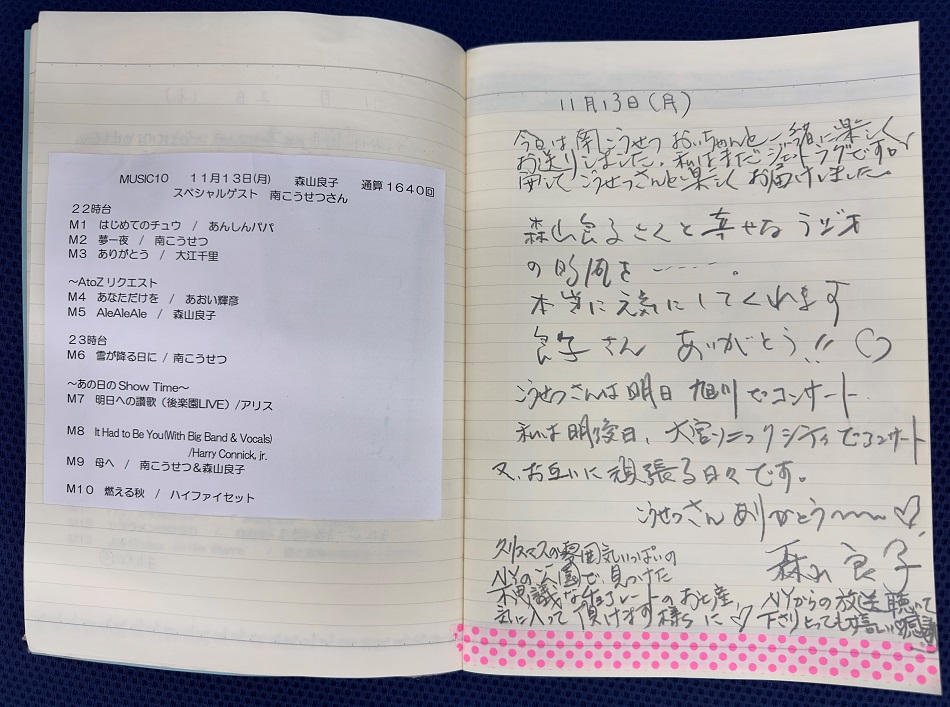 MUSIC10　11月13日(月)　森山良子　通算1640回
スペシャルゲスト　南こうせつさん
22時台
M1　はじめてのチュウ　/　あんしんパパ
M2　夢一夜　/　南こうせつ
M3　ありがとう　/　大江千里
～AtoZリクエスト
M4　あなただけを　/　あおい輝彦
M5　AleAleAle　/　森山良子
23時台
M6　雪が降る日に / 南こうせつ
～あの日のShow Time～
M7　明日への讃歌（後楽園LIVE）/アリス
M8　It Had to Be You(With Big Band & Vocals)
/Harry Connick, jr.
M9　母へ　/　南こうせつ＆森山良子
M10　燃える秋　/　ハイファイセット
11月13日（月）
今日は南こうせつ おいちゃんと一緒に楽しく
お送りしました。私はまだジェットラグです。
こうせつさんと楽しくお届けしました。
森山良子さんと幸せなラジオ
の時間を ‥‥‥。
本当に元気にしてくれます
良子さん ありがとう!! ♡
こうせつさんは明日 旭川でコンサート
私は明後日、大宮ソニックシティでコンサート
又、お互いに頑張る日々です。
こうせつさんありがとう〜〜〜♡
森山良子
クリスマスの雰囲気いっぱいの
NYの公園で見つけた
不思議なチョコレートのおと産
気に入って頂けます様に♡
NYからの放送聴いて
下さりとっても嬉しい感謝